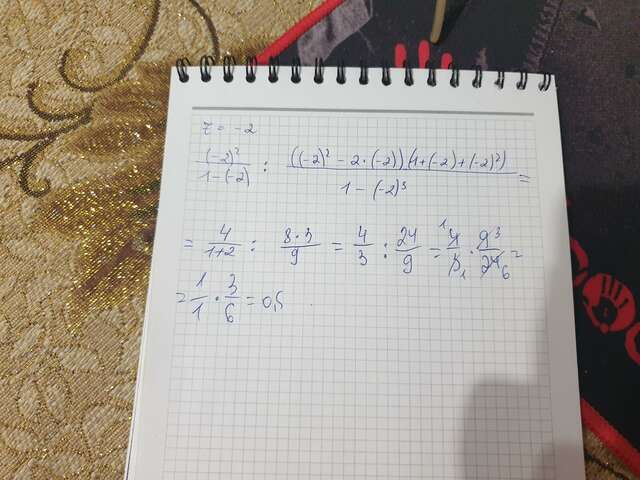 z = -2
(-2)²/(1-(-2)) : ((-2)² - 2·(-2))(1+(-2)+(-2)²)/(1-(-2)³) =
= 4/(1+2) : (8·3)/9 = 4/3 : 24/9 = ¹4/3₁ · 9³/24₆ =
= 1/1 · 3/6 = 0,5